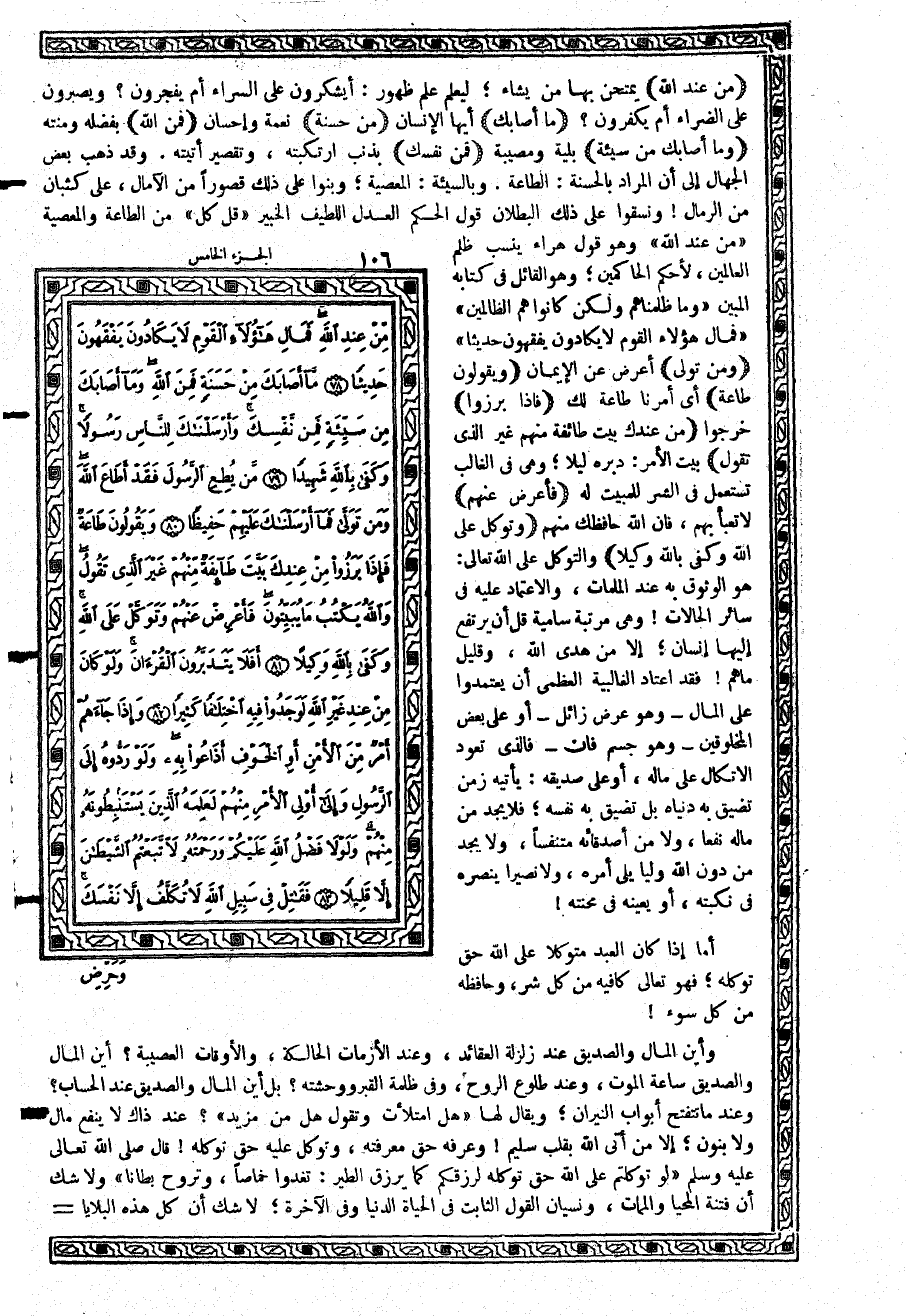 (من عند الله) يمتحن بها من يشاء ؛ ليعلم علم ظهور : أيشكرون على السراء أم يفجرون ؟ ويصبرون
على الضراء أم يكفرون ؟ (ما أصابك) أيها الإنسان (من حسنة) نعمة وإحسان (فمن الله) بفضله ومنته
(وما أصابك من سيئة) بلية ومصيبة (فمن نفسك) بذنب ارتكبته ، وتقصير أتيته . وقد ذهب بعض
الجهال إلى أن المراد بالحسنة : الطاعة . وبالسيئة : المعصية ؛ وبنوا على ذلك قصوراً من الآمال ، على كثبان
من الرمال ! ونسقوا على ذلك البطلان قول الحكم العدل اللطيف الخبير «قل كل» من الطاعة والمعصية
«من عند الله» وهو قول هراء ينسب ظلم
العالمين ، لأحكم الحاكمين ؛ وهو القائل فى كتابه
المبين «وما ظلمناهم ولكن كانوا هم الظالمين»
«فمال هؤلاء القوم لا يكادون يفقهون حديثا»
(ومن تولى) أعرض عن الإيمان (ويقولون
طاعة) أى أمرنا طاعة لك (فاذا برزوا)
خرجوا (من عندك بيت طائفة منهم غير الذى
تقول) بيت الأمر : دبره ليلا ؛ وهى فى الغالب
تستعمل فى الشر للمبيت له (فأعرض عنهم)
لا تعبأ بهم ، فان الله حافظك منهم (وتوكل على
الله وكفى بالله وكيلا) والتوكل على الله تعالى:
هو الوثوق به عند الملمات ، والاعتماد عليه فى
سائر الحالات ! وهى مرتبة سامية قل أن يرتفع
إليها إنسان ؛ إلا من هدى الله ، وقليل
ماهم ! فقد اعتاد الغالبية العظمى أن يعتمدوا
على المال ــ وهو عرض زائل ــ أو على بعض
المخلوقين ــ وهو جسم فان ــ فالذى تعود
الاتكال على ماله ، أو على صديقه : يأتيه زمن
تضيق به دنياه بل تضيق به نفسه ؛ فلا يجد من
ماله نفعا ، ولا من أصدقائه متنفساً ، ولا يجد
من دون الله وليا يلى أمره ، ولا نصيرا ينصره
فى نكبته ، أو يعينه فى محنته !
أما إذا كان العبد متوكلا على الله حق
توكله ؛ فهو تعالى كافيه من كل شر، وحافظه
من كل سوء !
١٠٦ الجزء الخامس
مِّنْ عِندِ ٱللَّهِۖ فَمَالِ هَٰٓؤُلَآءِ ٱلْقَوْمِ لَا يَكَادُونَ يَفْقَهُونَ
حَدِيثًا ﴿٧٨﴾ مَّآ أَصَابَكَ مِنْ حَسَنَةٍ فَمِنَ ٱللَّهِۖ وَمَآ أَصَابَكَ
مِن سَيِّئَةٍ فَمِن نَّفْسِكَۚ وَأَرْسَلْنَٰكَ لِلنَّاسِ رَسُولًاۚ
وَكَفَىٰ بِٱللَّهِ شَهِيدًا ﴿٧٩﴾ مَّن يُطِعِ ٱلرَّسُولَ فَقَدْ أَطَاعَ ٱللَّهَۖ
وَمَن تَوَلَّىٰ فَمَآ أَرْسَلْنَٰكَ عَلَيْهِمْ حَفِيظًا ﴿٨٠﴾ وَيَقُولُونَ طَاعَةٌ
فَإِذَا بَرَزُوا۟ مِنْ عِندِكَ بَيَّتَ طَآئِفَةٌ مِّنْهُمْ غَيْرَ ٱلَّذِى تَقُولُۖ
وَٱللَّهُ يَكْتُبُ مَا يُبَيِّتُونَۖ فَأَعْرِضْ عَنْهُمْ وَتَوَكَّلْ عَلَى ٱللَّهِۚ
وَكَفَىٰ بِٱللَّهِ وَكِيلًا ﴿٨١﴾ أَفَلَا يَتَدَبَّرُونَ ٱلْقُرْءَانَۚ وَلَوْ كَانَ
مِنْ عِندِ غَيْرِ ٱللَّهِ لَوَجَدُوا۟ فِيهِ ٱخْتِلَٰفًا كَثِيرًا ﴿٨٢﴾ وَإِذَا جَآءَهُمْ
أَمْرٌ مِّنَ ٱلْأَمْنِ أَوِ ٱلْخَوْفِ أَذَاعُوا۟ بِهِۦۖ وَلَوْ رَدُّوهُ إِلَى
ٱلرَّسُولِ وَإِلَىٰٓ أُو۟لِى ٱلْأَمْرِ مِنْهُمْ لَعَلِمَهُ ٱلَّذِينَ يَسْتَنۢبِطُونَهُۥ
مِنْهُمْۗ وَلَوْلَا فَضْلُ ٱللَّهِ عَلَيْكُمْ وَرَحْمَتُهُۥ لَٱتَّبَعْتُمُ ٱلشَّيْطَٰنَ
إِلَّا قَلِيلًا ﴿٨٣﴾ فَقَٰتِلْ فِى سَبِيلِ ٱللَّهِ لَا تُكَلَّفُ إِلَّا نَفْسَكَۚ
وَحَرِّضِ
وأين المال والصديق عند زلزلة العقائد ، وعند الأزمات الحالكة ، والأوقات العصيبة ؟ أين المال
والصديق ساعة الموت ، وعند طلوع الروح ، وفى ظلمة القبر ووحشته ؟ بل أين المال والصديق عند الحساب؟
وعند ما تتفتح أبواب النيران ؛ ويقال لها «هل امتلأت وتقول هل من مزيد» ؟ عند ذاك لا ينفع مال
ولا بنون ؛ إلا من أتى الله بقلب سليم ! وعرفه حق معرفته ، وتوكل عليه حق توكله ! قال صلى الله تعالى
عليه وسلم «لو توكلتم على الله حق توكله لرزقكم كما يرزق الطير : تغدوا خماصاً ، وتروح بطانا» ولا شك
أن فتنة المحيا والممات ، ونسيان القول الثابت فى الحياة الدنيا وفى الآخرة ؛ لا شك أن كل هذه البلايا =